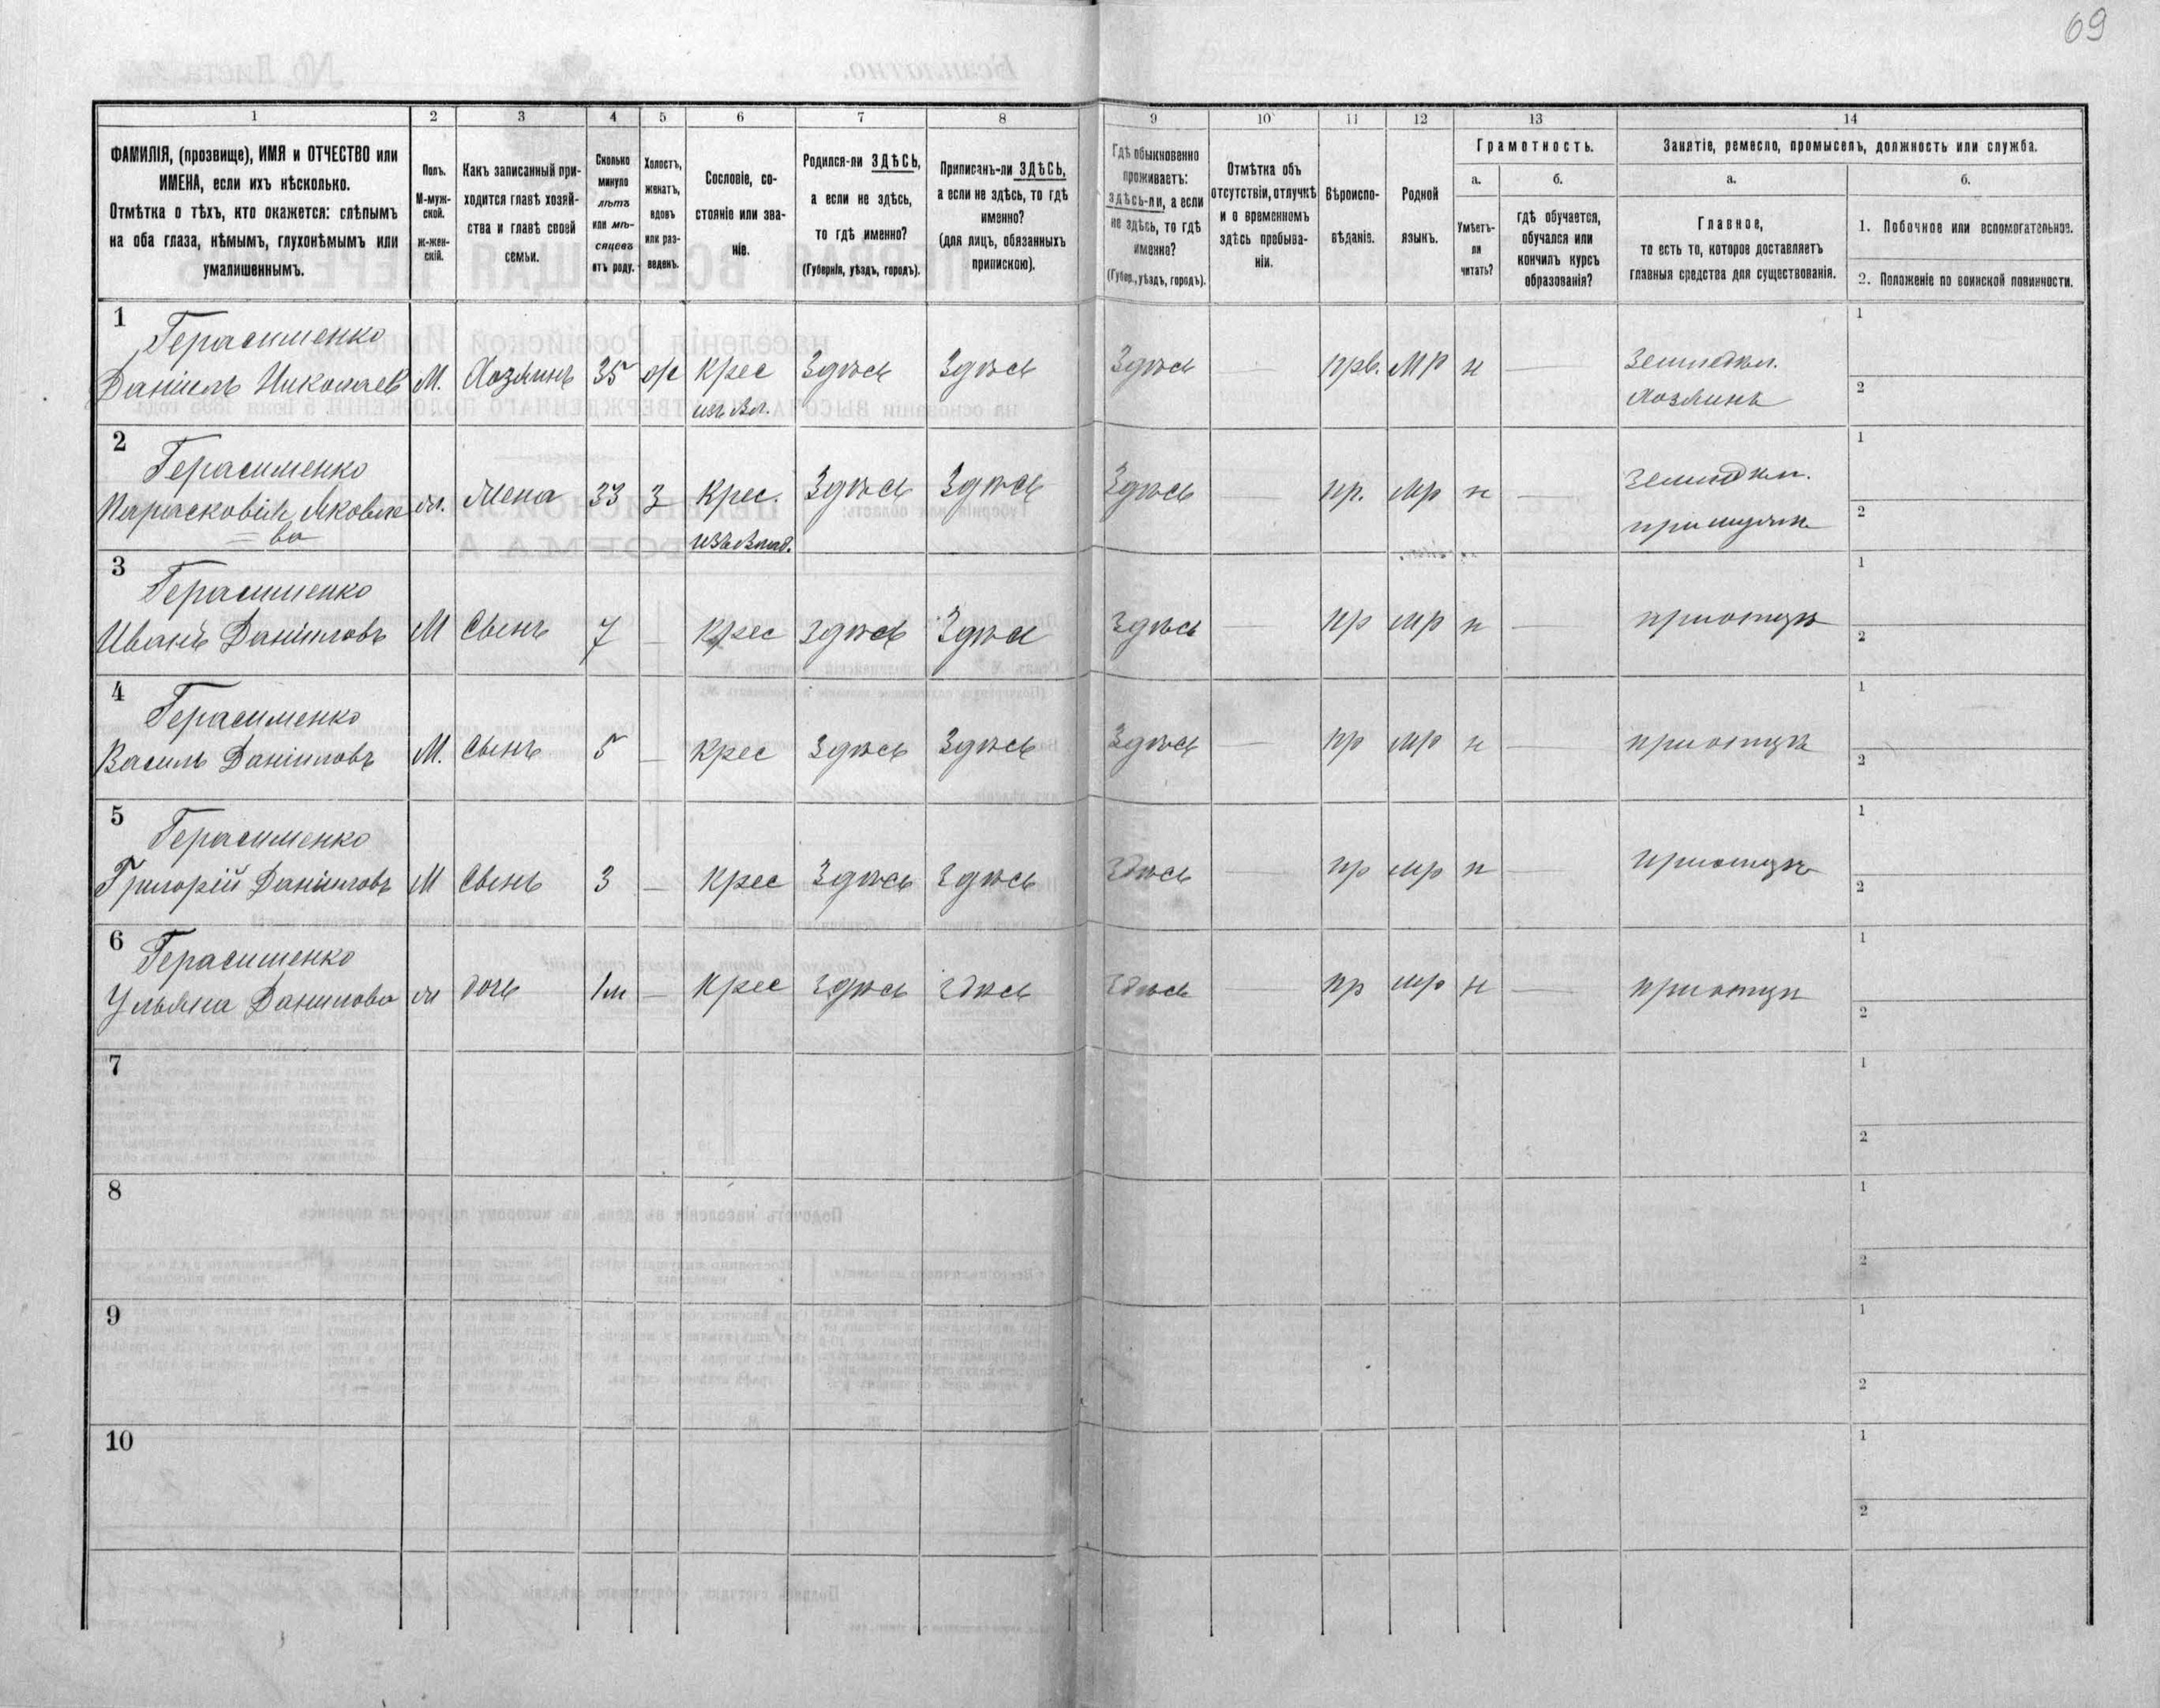 69
1 2 3 4 5 6 7 8 9 10 11 12 13 14
ФАМИЛІЯ, (прозвище), ИМЯ и ОТЧЕСТВО или
ИМЕНА, если ихъ нѣсколько.
Отмѣтка о тѣхъ, кто окажется: слѣпымъ
на оба глаза, нѣмымъ, глухонѣмымъ или
умалишеннымъ.
Полъ.
М-муж-
ской.
ж-жен-
скій.
Какъ записанный при-
ходится главѣ хозяй-
ства и главѣ своей
семьи.
Сколько
минуло
лѣтъ
или мѣ-
сяцевъ
отъ роду.
Холостъ,
женатъ,
вдовъ
или раз-
веденъ.
Сословіе, со-
стояніе или зва-
ніе.
Родился-ли ЗДѢСЬ,
а если не здѣсь,
то гдѣ именно?
(Губернія, уѣздъ, городъ).
Приписанъ-ли ЗДѢСЬ,
а если не здѣсь, то гдѣ
именно?
(для лицъ, обязанныхъ
припискою).
Гдѣ обыкновенно
проживаетъ:
здѣсь-ли, а если
не здѣсь, то гдѣ
именно?
(Губер., уѣздъ, городъ).
Отмѣтка объ
отсутствіи, отлучкѣ
и о временномъ
здѣсь пребыва-
ніи.
Вѣроиспо-
вѣданіе.
Родной
языкъ.
Грамотность.
а.
Умѣетъ-
ли
читать?
б.
гдѣ обучается,
обучался или
кончилъ курсъ
образованія?
Занятіе, ремесло, промыселъ, должность или служба.
а.
Главное,
то есть то, которое доставляетъ
главныя средства для существованія.
б.
1. Побочное или вспомогательное.
2. Положеніе по воинской повинности.
1
Герасименко
Даніилъ Николаев М. Хозяинъ 35 ж Крес Здѣсь Здѣсь Здѣсь — прв. мр н — Земледѣл.
изъ Вл. хозяинъ
1
2
2
Герасименко
Парасковія Яковле ж. жена 33 з Крес. Здѣсь Здѣсь Здѣсь — пр. мр н — Земледѣл.
ва изъ Влад.
1
2
3
Герасименко
Иванъ Даніиловъ М Сынъ 7 — Крес здѣсь Здѣсь Здѣсь — пр мр н —
1
2
4
Герасименко
Василь Даніиловъ М. Сынъ 5 — Крес Здѣсь Здѣсь Здѣсь — пр мр н —
1
2
5
Герасименко
Григорій Даніиловъ М Сынъ 3 — Крес Здѣсь Здѣсь Здѣсь — пр мр н —
1
2
6
Герасименко
Ульяна Данилова ж дочь 1м — Крес Здѣсь Здѣсь Здѣсь — пр мр н —
1
2
7
1
2
8
1
2
9
1
2
10
1
2